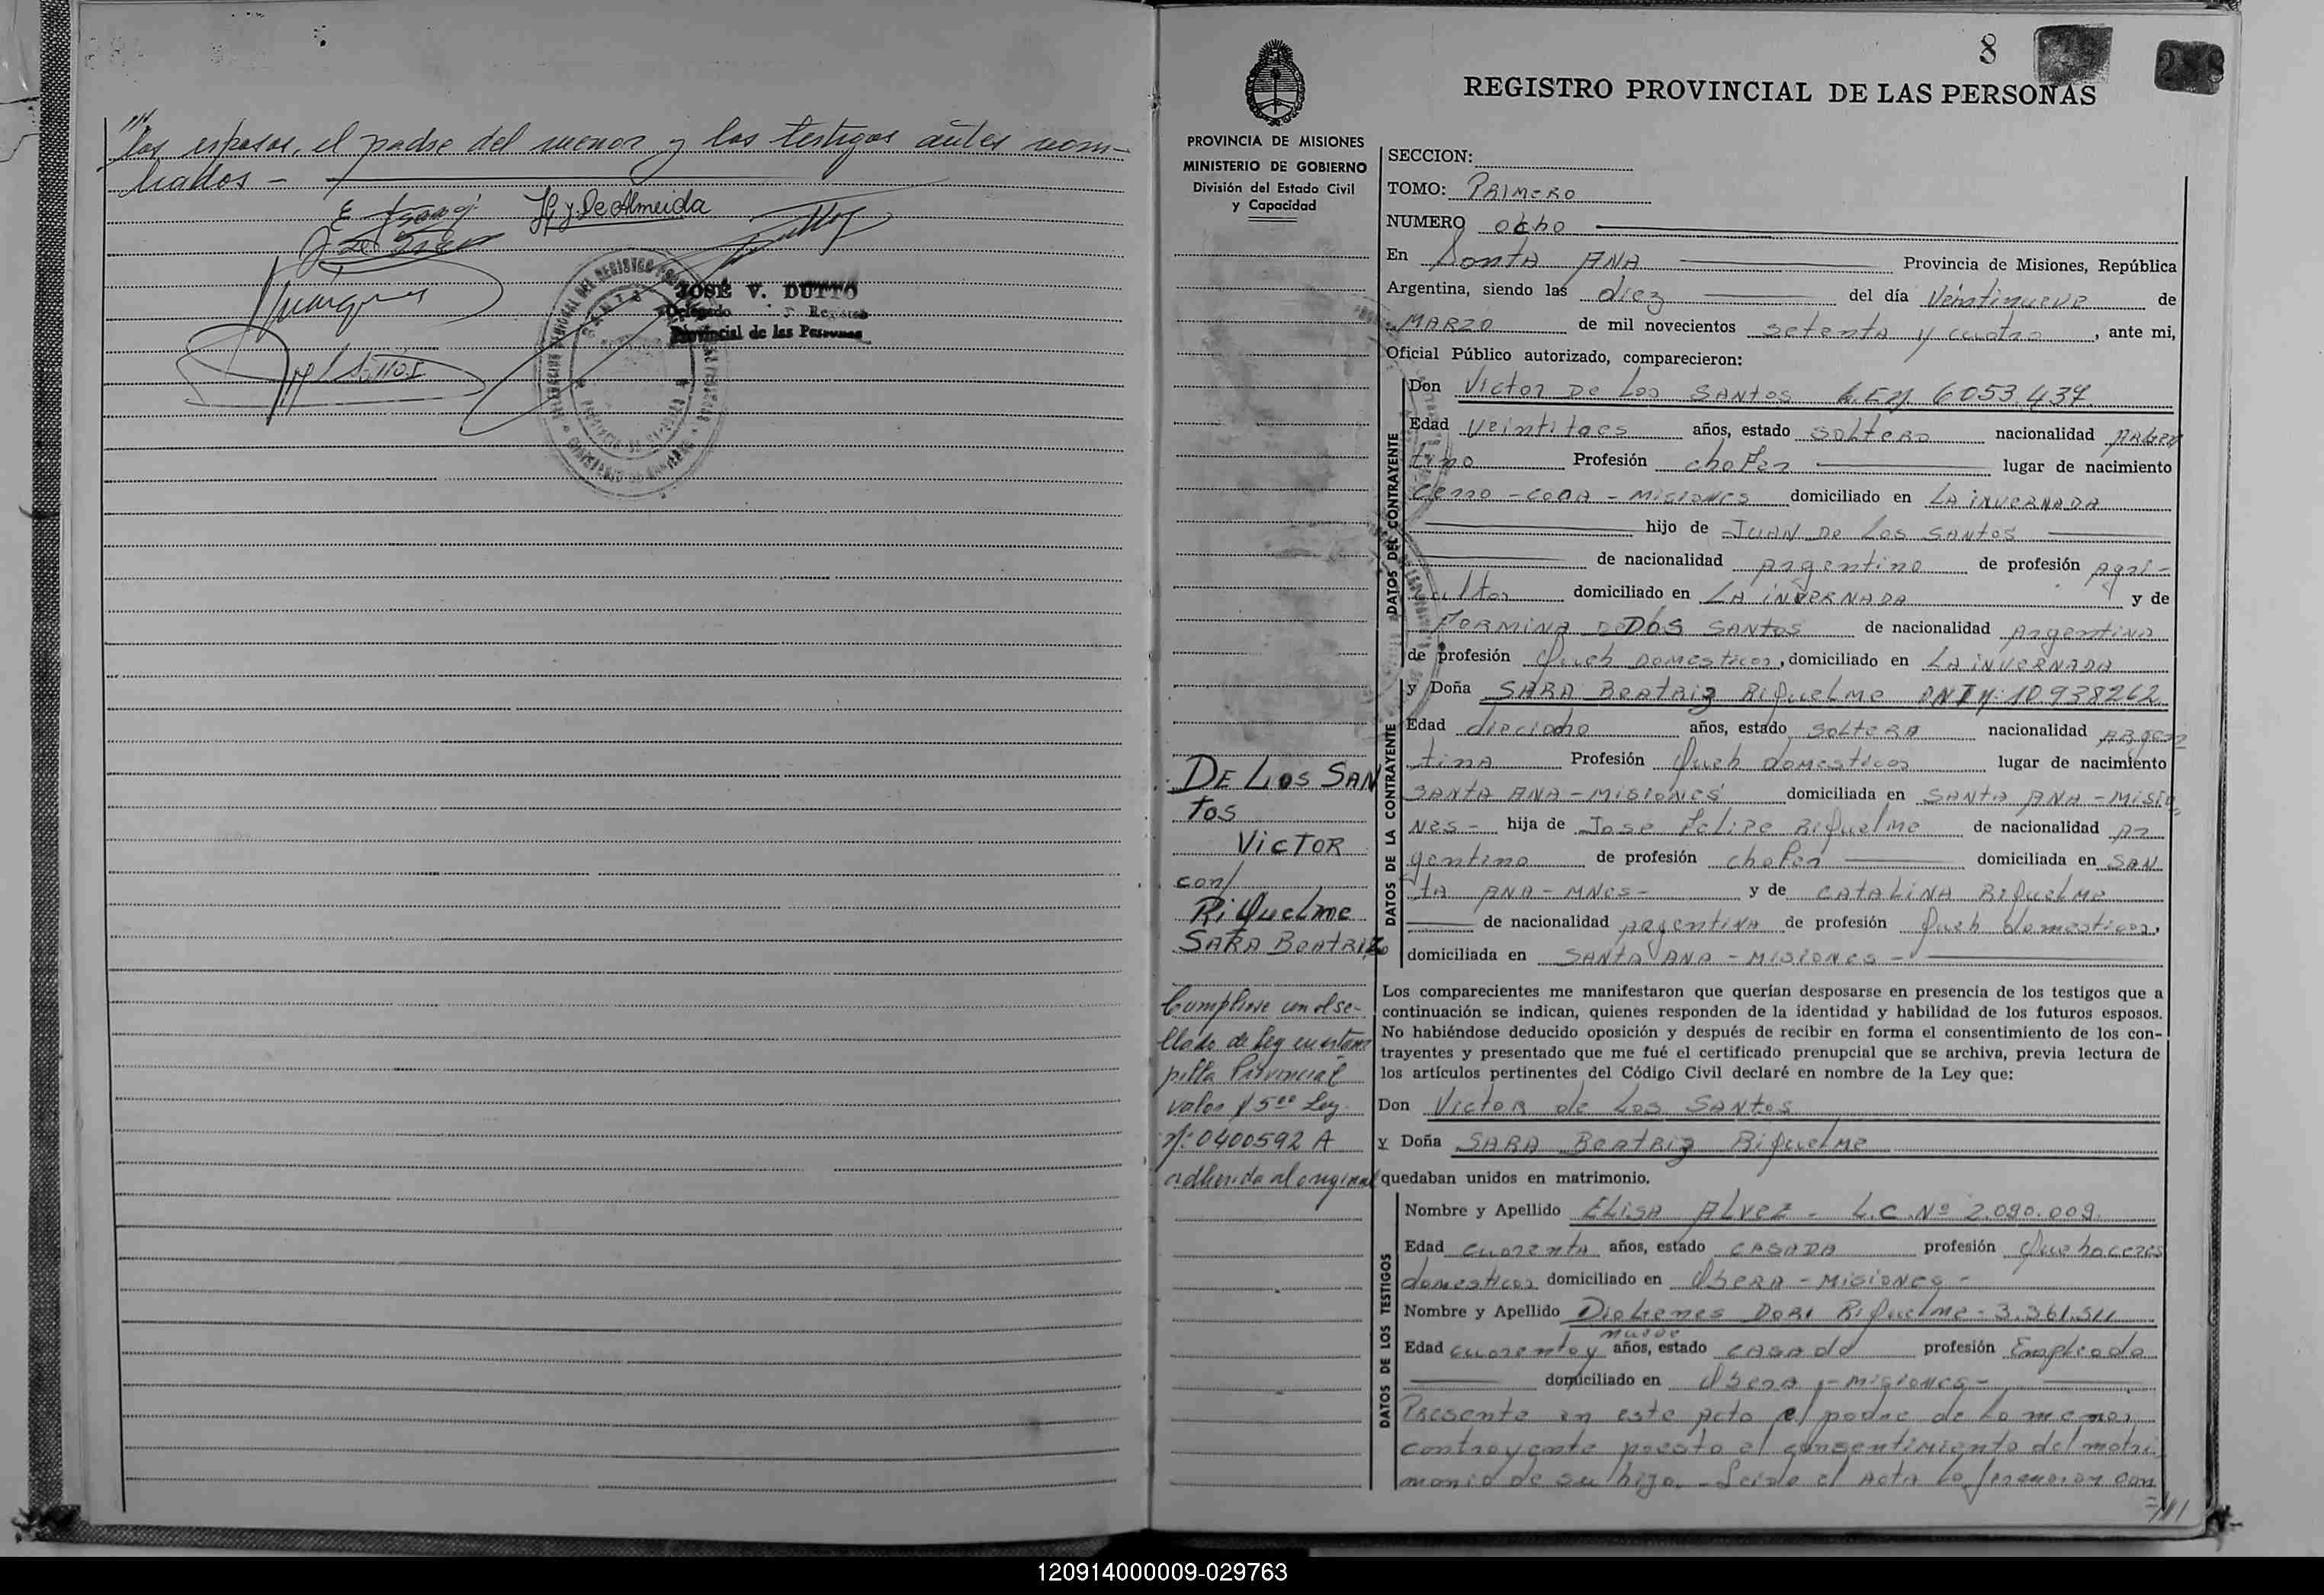 los esposos, el padre del menor y los testigos antes nom-
brados -
H. y. De Almeida
JOSÉ V. DUTTO
Delegado Registro
Provincial de las Personas
8
REGISTRO PROVINCIAL DE LAS PERSONAS
PROVINCIA DE MISIONES
MINISTERIO DE GOBIERNO
División del Estado Civil
y Capacidad
DE LOS SAN
TOS
VICTOR
con/
RiQuelme
SARA BeatRiz
Cumplase con el se-
llado de Ley en estam
pilla Provincial
valor $ 5.00 Ley.
Nº: 0400592 A
adherida al original
SECCION:
TOMO: PRIMERO
NUMERO ocho
En Santa ANA Provincia de Misiones, República
Argentina, siendo las diez del día Veintinueve de
MARZO de mil novecientos setenta y cuatro, ante mi,
Oficial Público autorizado, comparecieron:
DATOS DEL CONTRAYENTE
Don Victor De Los SANtos 6.053.437
Edad veintitres años, estado soltero nacionalidad ARgen
tino Profesión chofer lugar de nacimiento
Cerro-CORA-Misiones domiciliado en LA iNVERNADA
hijo de JUAN De Los SANtos
de nacionalidad Argentino de profesión Agri-
cultor domiciliado en LA iNVERNADA y de
FERMINA DE DOS SANtos de nacionalidad Argentina
de profesión Queh Domesticos, domiciliado en LA iNVERNADA
DATOS DE LA CONTRAYENTE
y Doña SARA Beatriz RiQuelme DNI Nº: 10.938262
Edad dieciocho años, estado SOLteRA nacionalidad ARgen
tina Profesión Queh domesticos lugar de nacimiento
SANTA ANA-MisioNes domiciliada en SANTA ANA-MISIO
Nes- hija de Jose Felipe RiQuelme de nacionalidad Ar
gentino de profesión chofer domiciliada en SAN
tA ANA-MNes- y de CATALiNA RiQuelMe
de nacionalidad argentina de profesión Queh domesticos,
domiciliada en SANTA ANA - MisioNes -
Los comparecientes me manifestaron que querían desposarse en presencia de los testigos que a
continuación se indican, quienes responden de la identidad y habilidad de los futuros esposos.
No habiéndose deducido oposición y después de recibir en forma el consentimiento de los con-
trayentes y presentado que me fué el certificado prenupcial que se archiva, previa lectura de
los artículos pertinentes del Código Civil declaré en nombre de la Ley que:
Don Victor de Los SANtos
y Doña SARA BeatRiz RiQuelMe
quedaban unidos en matrimonio.
DATOS DE LOS TESTIGOS
Nombre y Apellido ELISA ALVez - L.C. Nº 2.090.009.
Edad cuarenta años, estado CASADA profesión Quehaceres
domesticos domiciliado en ObeRA - MisioNes -
Nombre y Apellido Diogenes DoRi RiQuelme - 3.361.311
nueve
Edad cuarenta y años, estado CASAdo profesión Empleado
domiciliado en Obera - misiones -
Presente en este Acto el padre de la menor
contrayente presta el consentimiento del matri
monio de su hija. - Leida el Acta la firmaron con
///
120914000009-029763